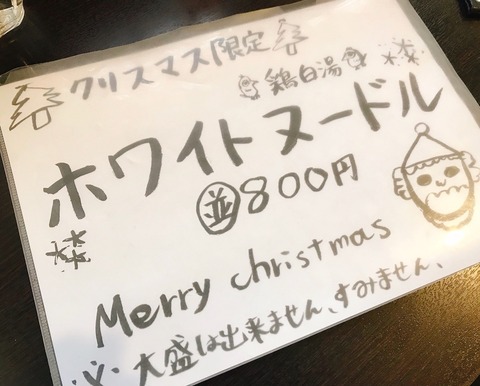 クリスマス限定
鶏白湯
ホワイトヌードル
並800円
Merry christmas
※大盛は出来ません、すみません、